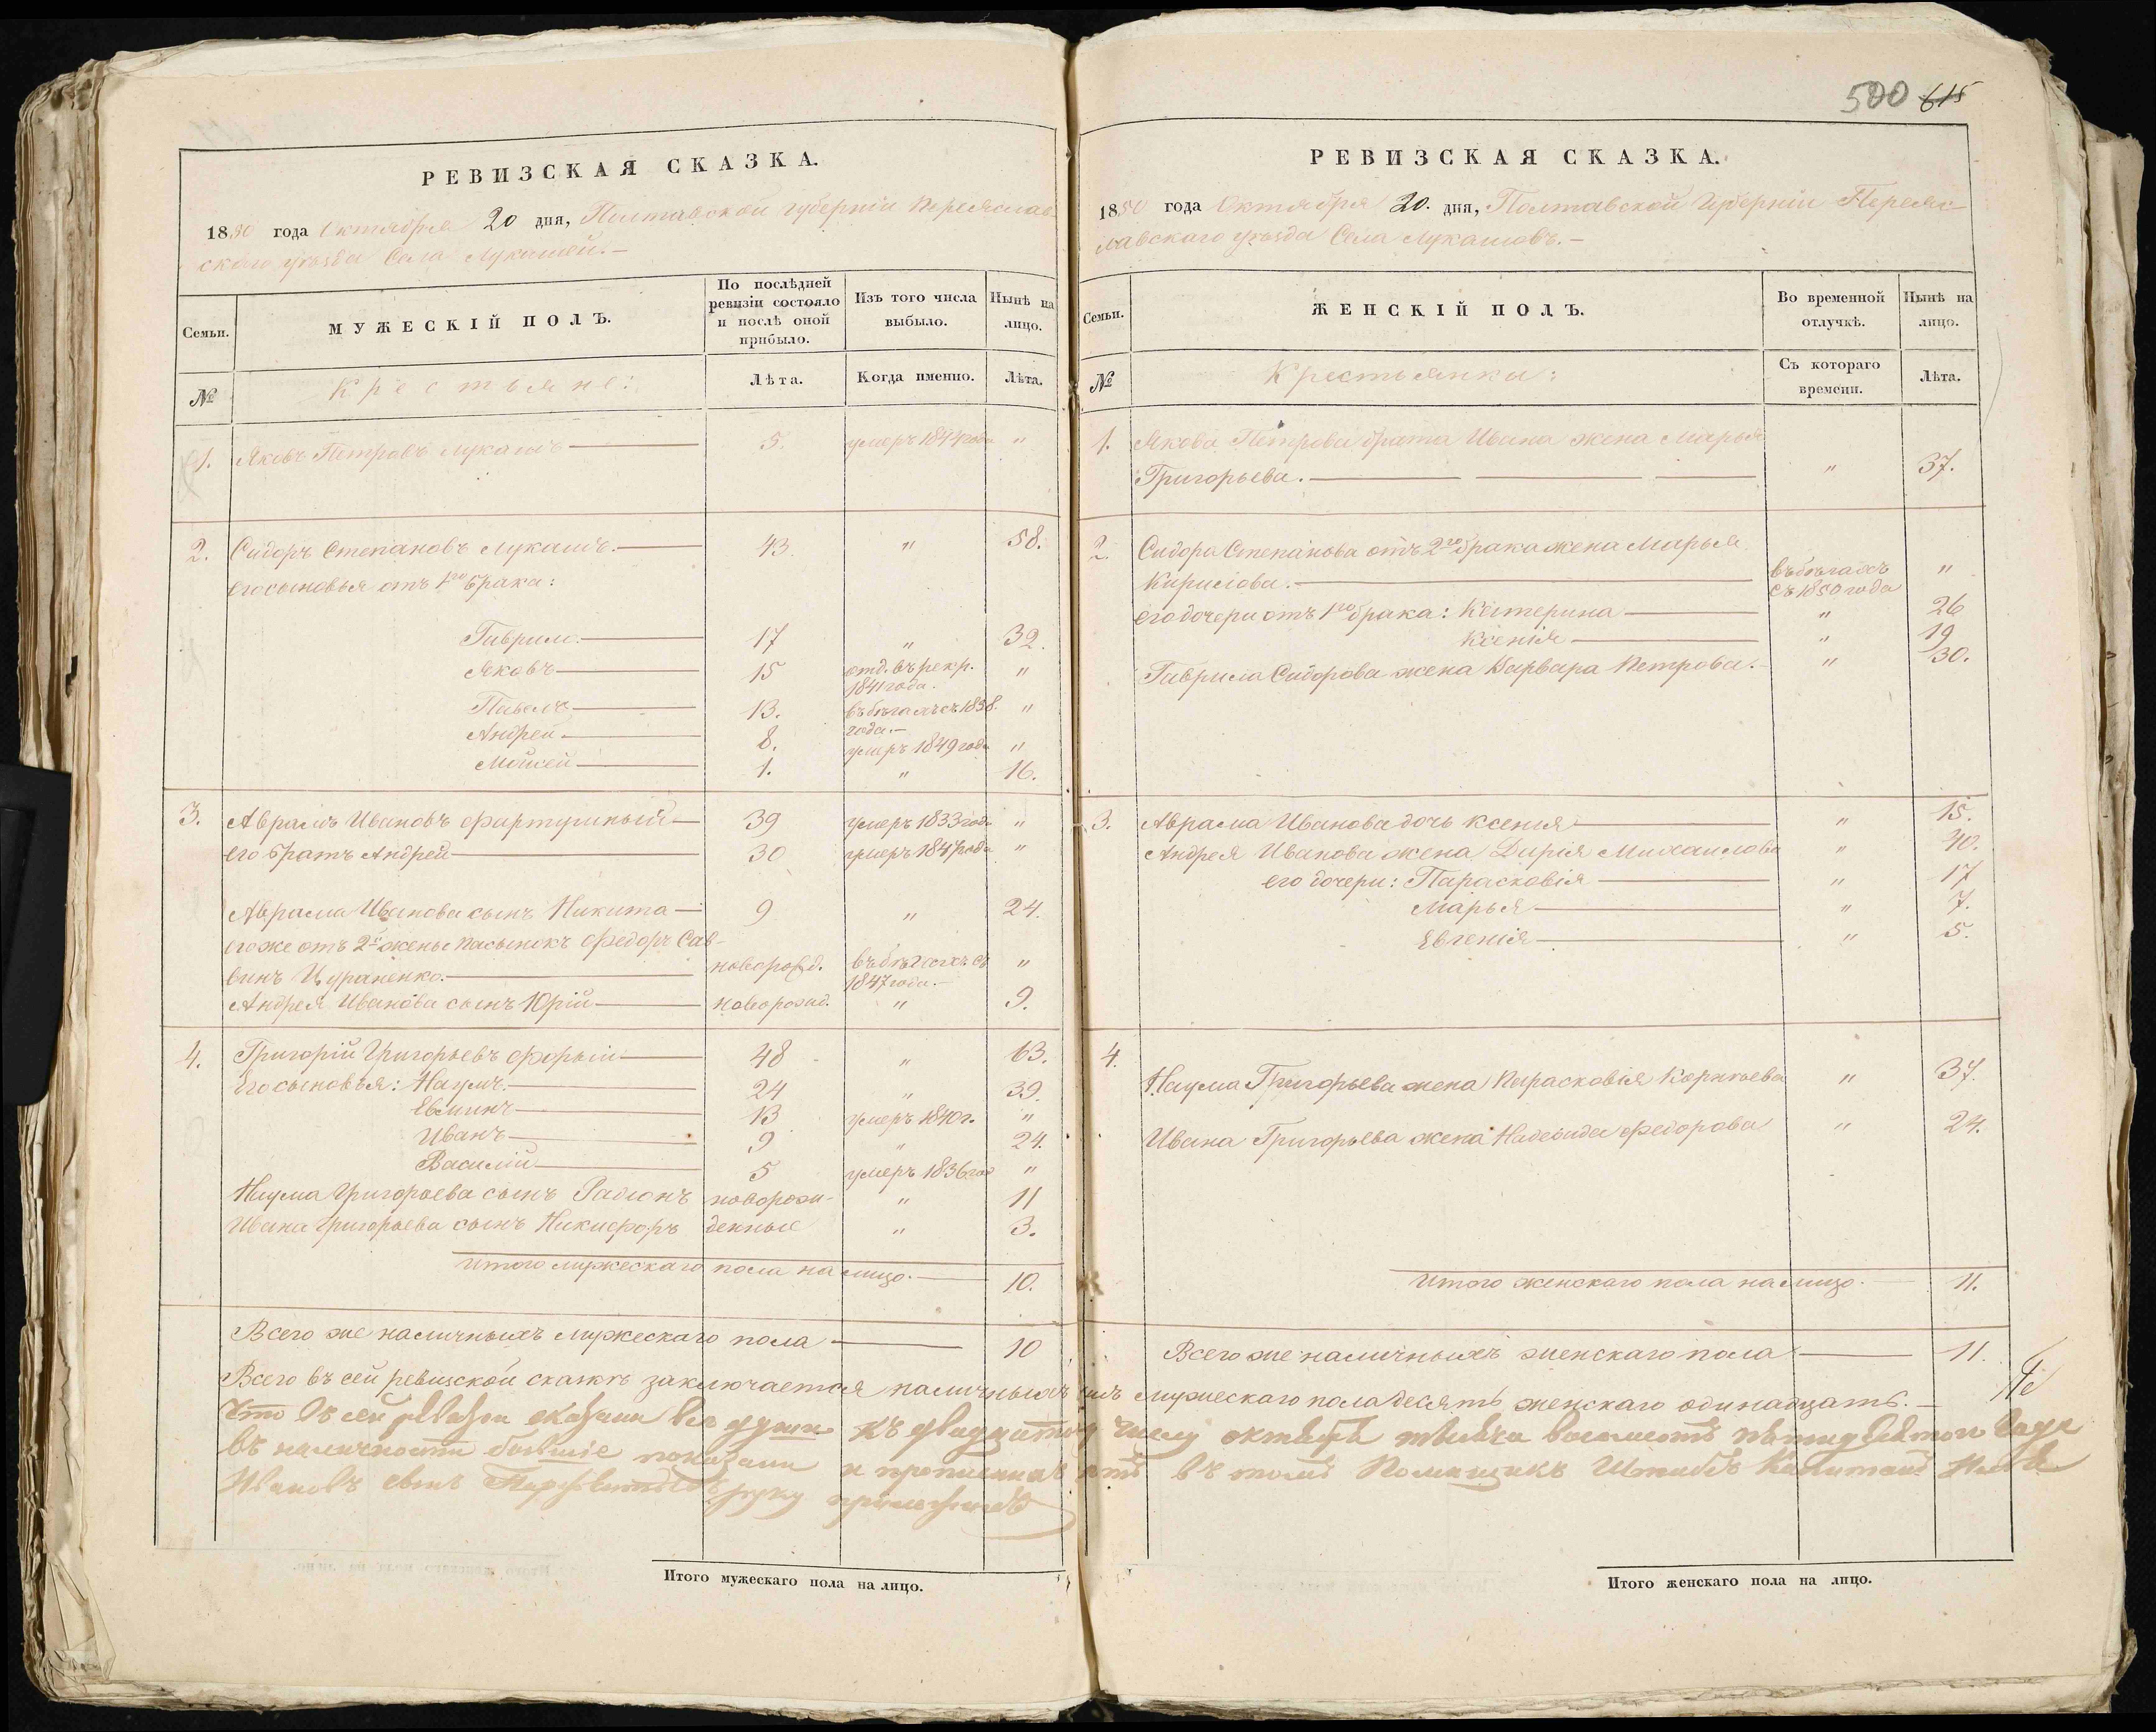 500 615
РЕВИЗСКАЯ СКАЗКА.
1850 года Октября 20 дня, Полтавской губерніи Переяслав-
скаго уѣзда Села Лукашей.—
Семьи.
МУЖЕСКІЙ ПОЛЪ.
По послѣдней
ревизіи состояло
и послѣ оной
прибыло.
Изъ того числа
выбыло.
Нынѣ на
лицо.
№
Крестьяне:
Лѣта.
Когда именно.
Лѣта.
1. Яковъ Петровъ Лукашъ 5. умеръ 1844 года "
2. Сидоръ Степановъ Лукашъ. 43. " 58.
его сыновья отъ 1го брака:
Гаврило. 17 " 32.
Яковъ 15 отд. въ рекр. "
1841 года.
Павелъ 13. въ бѣгахъ съ 1838. "
года.—
Андрей 8. умеръ 1849 года "
Мойсей 1. " 16.
3. Аврамъ Ивановъ Фартушный 39 умеръ 1833 года "
его братъ Андрей 30 умеръ 1847 года "
Аврама Иванова сынъ Никита 9 " 24.
его же отъ 2й жены пасынокъ Федоръ Сав-
винъ Цураненко. новорожд. въ бѣгахъ съ "
1847 года.—
Андрея Иванова сынъ Юрій новорожд. " 9.
4. Григорій Григорьевъ Форый 48 " 63.
Его сыновья: Наумъ. 24 " 39.
Евминъ 13 умеръ 1840 г. "
Иванъ 9 " 24.
Василій 5 умеръ 1836 год "
Наума Григорьева сынъ Радіонъ новорож- " 11
Ивана Григорьева сынъ Никифоръ денные " 3.
Итого мужескаго пола на лицо. 10.
Всего же наличныхъ мужескаго пола 10
Итого мужескаго пола на лицо.
РЕВИЗСКАЯ СКАЗКА.
1850 года Октября 20. дня, Полтавской Губерніи Переяс-
лавскаго уѣзда Села Лукашовъ.—
Семьи.
ЖЕНСКІЙ ПОЛЪ.
Во временной
отлучкѣ.
Нынѣ на
лицо.
№
Крестьянки:
Съ котораго
времени.
Лѣта.
1. Якова Петрова брата Ивана жена Марья
Григорьева. " 37.
2. Сидора Степанова отъ 2го брака жена Марья
Кирилова. въ бѣгахъ "
съ 1850 года
его дочери отъ 1го брака: Катерина " 26
Ксенія " 19
Гаврила Сидорова жена Варвара Петрова. " 30.
3. Аврама Иванова дочь Ксенія " 15.
Андрея Иванова жена Дарія Михайлова " 40.
его дочери: Парасковія " 17
Марья " 7.
Евгенія " 5.
4.
Наума Григорьева жена Парасковія Корнѣева " 37.
Ивана Григорьева жена Надежда Федорова " 24.
Итого женскаго пола на лицо. 11.
Всего же наличныхъ женскаго пола 11.
Всего въ сей ревизской сказкѣ заключается наличныхъ душъ мужескаго пола десять женскаго одинадцать.—
Что въ сей ревизіи сказаны все души къ двадцатому числу октября тысяча восемьсотъ пятидесятого года
въ наличности бывшіе показаны и прописныхъ нѣтъ въ томъ Помѣщикъ Штабсъ Капитанъ
Ивановъ сынъ руку приложилъ
Итого женскаго пола на лицо.